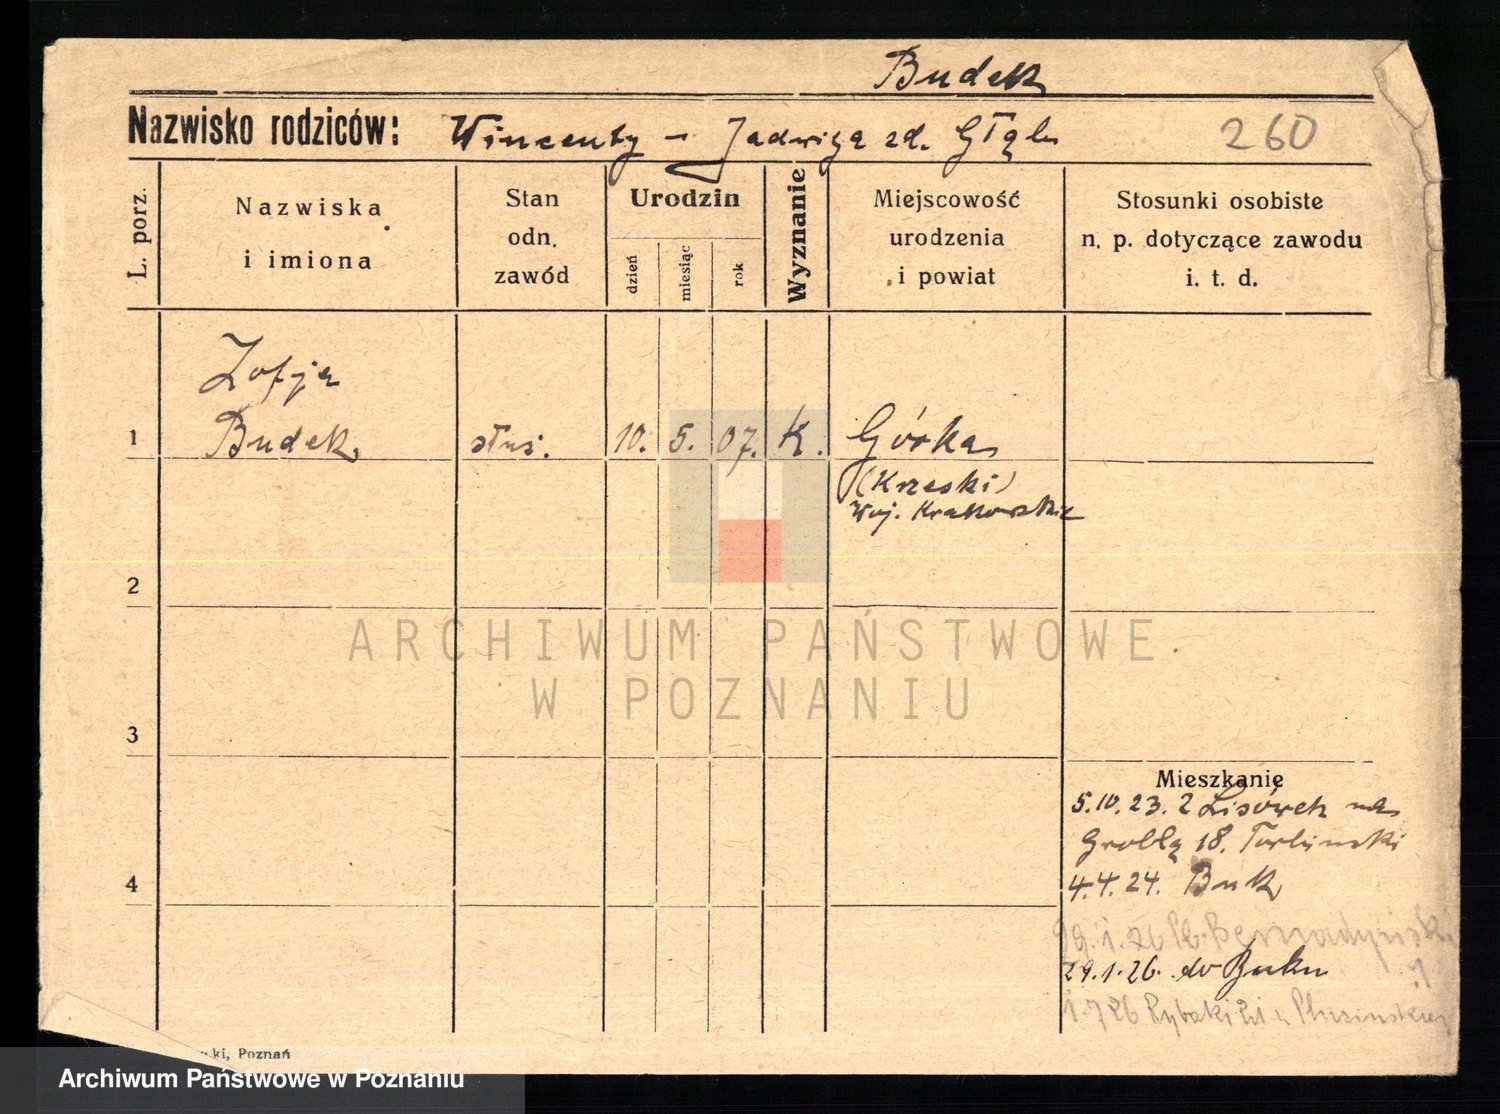 Budek
Nazwisko rodziców: Wincenty - Jadwiga zd. Głąb
260
L. porz.
Nazwiska
i imiona
Stan
odn.
zawód
Urodzin
dzień
miesiąc
rok
Wyznanie
Miejscowość
urodzenia
i powiat
Stosunki osobiste
n. p. dotyczące zawodu
i. t. d.
Zofja
1 Budek służ. 10. 5. 07. K. Górka
(Krzeski)
Woj. Krakowskie
2
ARCHIWUM PAŃSTWOWE
W POZNANIU
3
Mieszkanie
5.10.23. z Lisówek
Groblą 18.
4
4.4.24. Buk
29.1.26 Pl. Bernadyński
29.1.26. do Buku
1.7 26 Rybaki
ki, Poznań
Archiwum Państwowe w Poznaniu